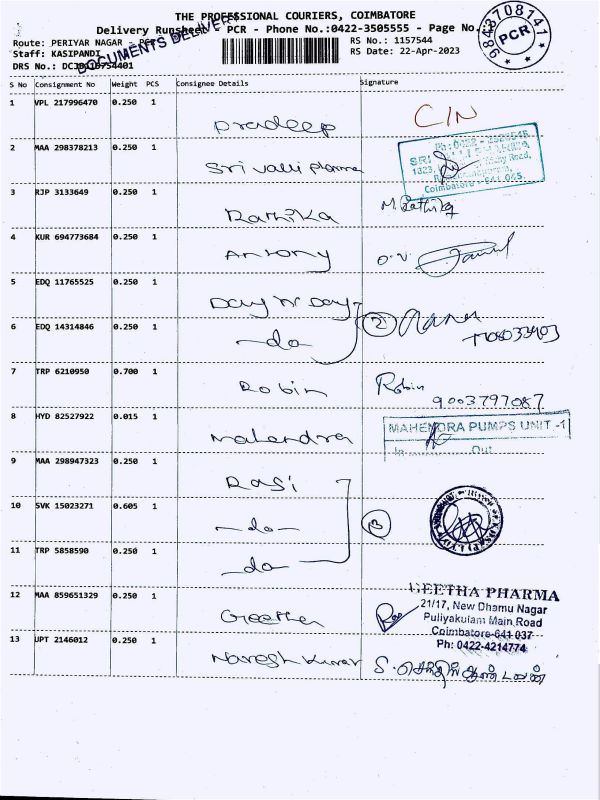 THE PROFESSIONAL COURIERS, COIMBATORE
Delivery Runsheet - PCR - Phone No.:0422-3505555 - Page No.
DOCUMENTS DELIVERY
9843708141
PCR
Route: PERIYAR NAGAR -
Staff: KASIPANDI
DRS No.:
RS No.: 1157544
RS Date: 22-Apr-2023
S No Consignment No Weight PCS Consignee Details Signature
1 VPL 217996470 0.250 1 Pradeep CIN
2 MAA 298378213 0.250 1 Sri valli pharma
SRI
Coimbatore - 641 045.
3 RJP 3133649 0.250 1 Rathika M. Rathika
4 KUR 694773684 0.250 1 Antony O.V.
5 EDQ 11765525 0.250 1 Day N Day
6 EDQ 14314846 0.250 1 -do- 2
7 TRP 6210950 0.700 1 Robin Robin
9003797087
8 HYD 82527922 0.015 1 Mahendra
MAHENDRA PUMPS UNIT -1
In Out
9 MAA 298947323 0.250 1 Rasi
10 SVK 15023271 0.605 1 -do-
11 TRP 5858590 0.250 1 -do-
12 MAA 859651329 0.250 1 Geetha
GEETHA PHARMA
21/17, New Dhamu Nagar
Puliyakulam Main Road
Coimbatore-641 037
Ph: 0422-4214774
13 UPT 2146012 0.250 1 Naresh Kumar